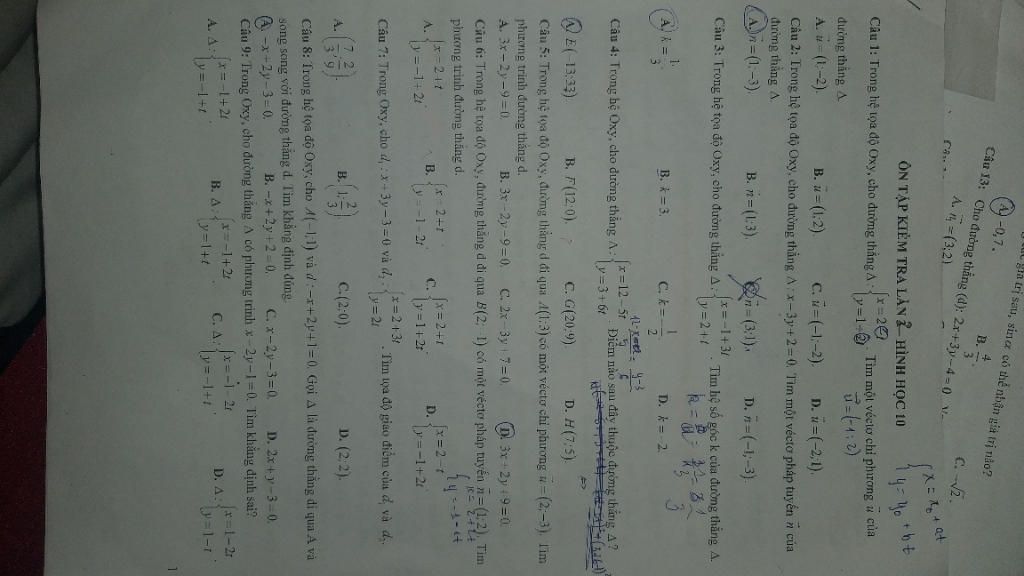 giá trị sau, sinα có thể nhận giá trị nào?
A. -0,7. B. 4/3. C. -√2.
Câu 13: Cho đường thẳng (d): 2x+3y-4=0
A. n₁ = (3;2)
ÔN TẬP KIỂM TRA LẦN 2 HÌNH HỌC 10
{x = x₀ + at
{y = y₀ + bt
Câu 1: Trong hệ tọa độ Oxy, cho đường thẳng Δ: {x=2-t {y=1+2t. Tìm một véctơ chỉ phương u của
đường thẳng Δ
u=(-1;2)
A. u=(1;-2). B. u=(1;2). C. u=(-1;-2). D. u=(-2;1).
Câu 2: Trong hệ tọa độ Oxy, cho đường thẳng Δ: x-3y+2=0. Tìm một véctơ pháp tuyến n của
đường thẳng Δ
A. n=(1;-3). B. n=(1;3). C. n=(3;1). D. n=(-1;-3).
Câu 3: Trong hệ tọa độ Oxy, cho đường thẳng Δ: {x=-1+3t {y=2+t. Tìm hệ số góc k của đường thẳng Δ.
A. k=1/3. B. k=3. C. k=-1/2. D. k=-2.
Câu 4: Trong hệ Oxy, cho đường thẳng Δ: {x=12-5t {y=3+6t. Điểm nào sau đây thuộc đường thẳng Δ?
A. E(-13;33) B. F(12;0). C. G(20;9). D. H(7;5).
Câu 5: Trong hệ tọa độ Oxy, đường thẳng d đi qua A(1;3) có một véctơ chỉ phương u=(2;-3). Tìm
phương trình đường thẳng d.
A. 3x-2y-9=0. B. 3x-2y-9=0. C. 2x-3y+7=0. D. 3x+2y+9=0.
Câu 6: Trong hệ tọa độ Oxy, đường thẳng d đi qua B(2;-1) có một véctơ pháp tuyến n=(1;2). Tìm
phương trình đường thẳng d.
A. {x=2+t {y=-1+2t. B. {x=2+t {y=-1-2t. C. {x=2+t {y=1+2t. D. {x=2-t {y=-1+2t.
Câu 7: Trong Oxy, cho d₁: x+3y-3=0 và d₂: {x=2+3t {y=2t. Tìm tọa độ giao điểm của d₁ và d₂.
A. (7/3;2/9) B. (1;2/3) C. (2;0). D. (2;2).
Câu 8: Trong hệ tọa độ Oxy, cho A(-1;1) và d: -x+2y+1=0. Gọi Δ là đường thẳng đi qua A và
song song với đường thẳng d. Tìm khẳng định đúng.
A. -x+2y-3=0. B. -x+2y+2=0. C. x-2y-3=0. D. 2x+y-3=0.
Câu 9: Trong Oxy, cho đường thẳng Δ có phương trình x-2y-1=0. Tìm khẳng định sai?
A. Δ: {x=-1+2t {y=-1+t. B. Δ: {x=1+2t {y=1+t. C. Δ: {x=-1-2t {y=-1+t. D. Δ: {x=1-2t. {y=1-t.
1